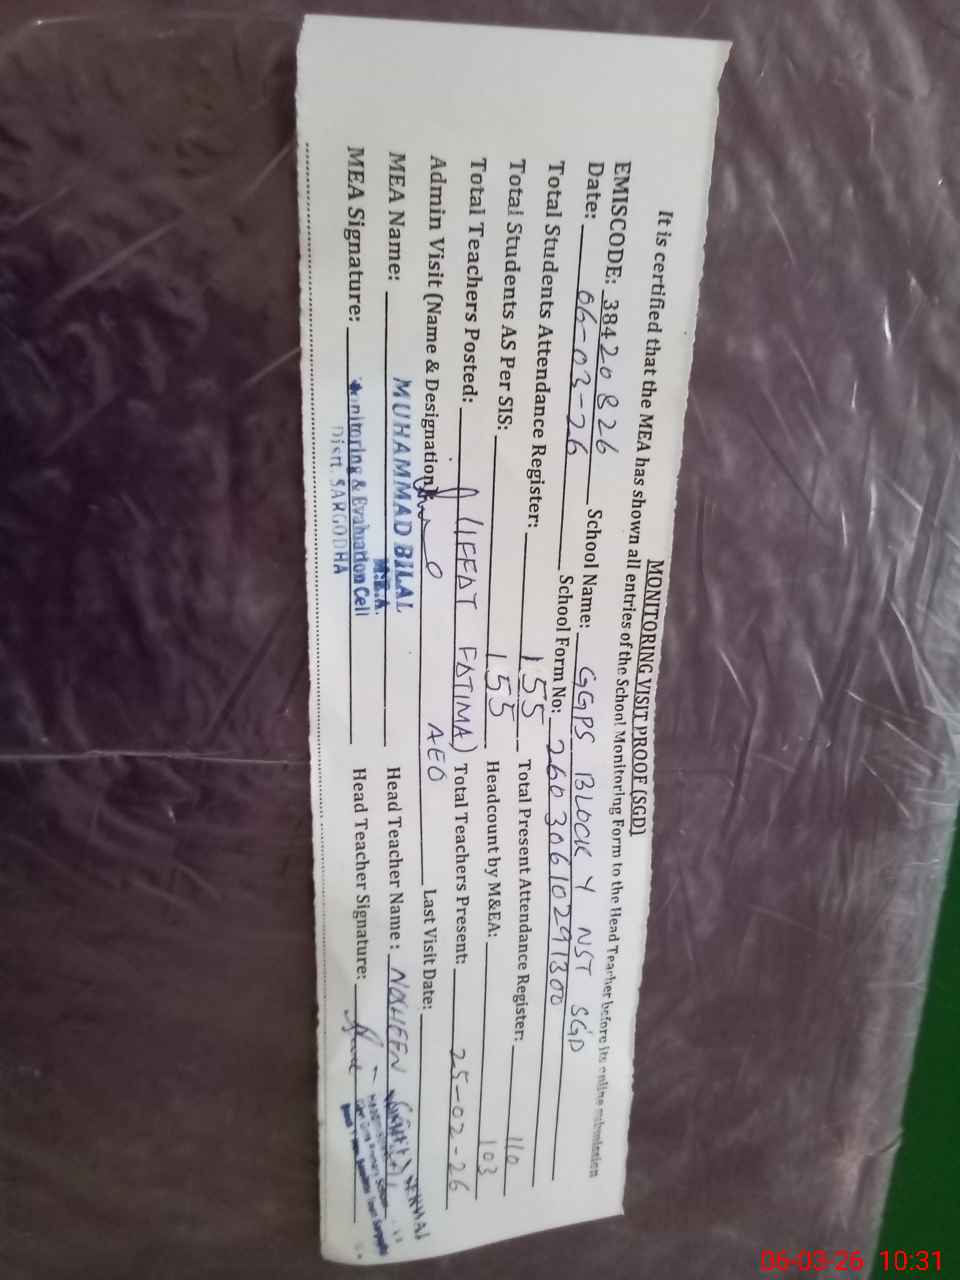 MONITORING VISIT PROOF (SGD)
It is certified that the MEA has shown all entries of the School Monitoring Form to the Head Teacher before its online submission
EMISCODE: 38420826 School Name: GGPS BLOCK Y NST SGD
Date: 06-03-26 School Form No: 26030610291300
Total Students Attendance Register: 155 Total Present Attendance Register: 110
Total Students AS Per SIS: 155 Headcount by M&EA: 103
Total Teachers Posted: Total Teachers Present:
(IFFAT FATIMA) 25-02-26
Admin Visit (Name & Designation) AEO Last Visit Date:
MEA Name: MUHAMMAD BILAL Head Teacher Name: NOSHEEN
M.E.A.
MEA Signature: Monitoring & Evaluation Cell Head Teacher Signature:
Distt. SARGODHA
06-03-26 10:31